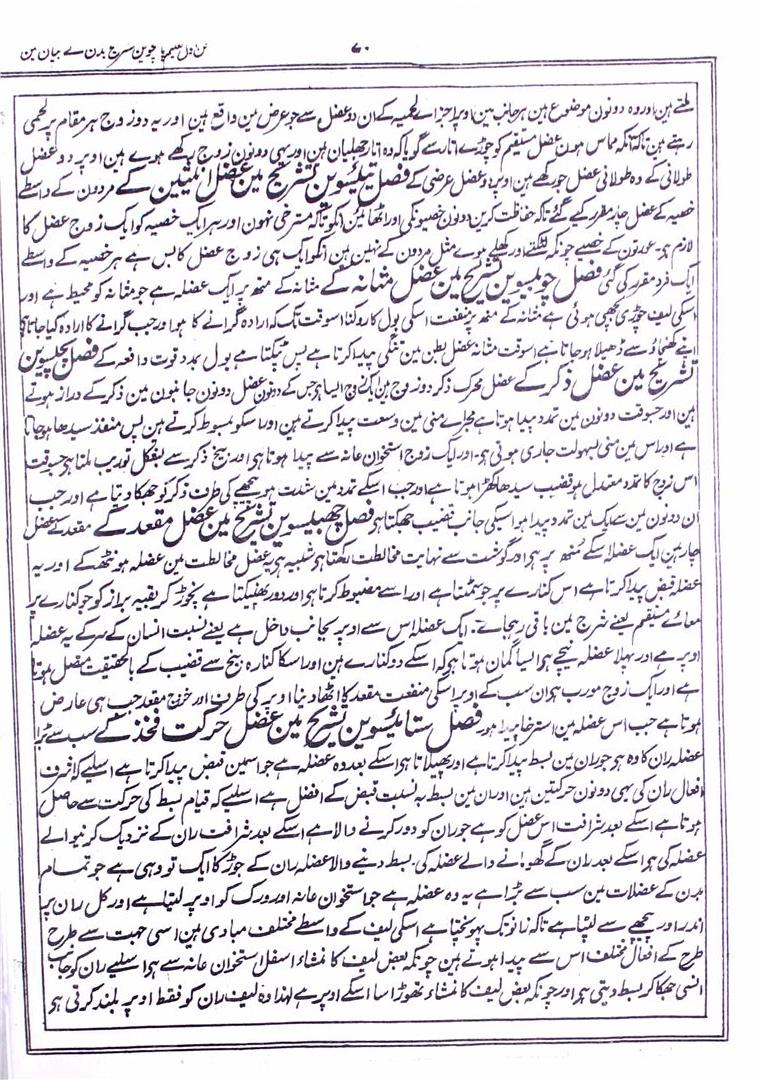 ۷۰
ملتے ہین اور وہ دونون موضوع ہین ہر جانب مین اوپر اجزاے لحمیہ کے ان دو عضل سے جو عرض مین واقع ہین اور یہ دو زوج ہر مقام پر لحمی
رہتے ہین تاکہ مماس ہون عضل مستقیم کو چوڑے اوتار سے گویا کہ وہ اوتار جھلیان ہین اور یہی دونون زوج رکھے ہوے ہین اوپر دو عضل
طولانی کے وہ طولانی عضل جو رکھے ہین اوپر دو عضل عرضی کے فصل تیئیسوین تشریح مین عضل انثیین کے مردون کے واسطے
خصیہ کے عضل چار مقرر کیے گئے تاکہ حفاظت کرین دونون خصیونکی اور اٹھائین انکو تاکہ مسترخی نہون اور ہر ایک خصیہ کو ایک زوج عضل کا
لازم ہے۔ عورتون کے خصیے چونکہ لٹکتے اور کھلے ہوے مثل مردون کے نہین ہین انکو ایک ہی زوج عضل کا بس ہے ہر خصیہ کے واسطے
ایک فرد مقرر کی گئی فصل چوبیسوین تشریح مین عضل مثانہ کے مثانہ کے منھ پر ایک عضلہ ہے جو مثانہ کو محیط ہے اور
اسکی لیف چوڑی بچھی ہوئی ہے مثانہ کے منھ پر منفعت اسکی بول کا روکنا اسوقت تک کہ ارادہ گرانے کا ہو اور جب گرانے کا ارادہ کیا جاتا ہے
اپنے کھچاؤ سے ڈھیلا ہو جاتا ہے اسوقت مثانہ عضل بطن مین تنگی پیدا کرتا ہے پس ٹپکتا ہے بول بمدد قوت دافعہ کے فصل پچیسوین
تشریح مین عضل ذکر کے عضل محرک ذکر دو زوج ہین ایک زوج ایسا ہے جس کے دونون عضل دونون جانبون مین ذکر کے دراز ہوتے
ہین اور جسوقت دونون مین تمدد پیدا ہوتا ہے مجراے منی مین وسعت پیدا کرتے ہین اور اسکو مبسوط کرتے ہین پس منفذ سیدھا ہو جاتا
ہے اور اس مین منی بسہولت جاری ہوتی ہے۔ اور ایک زوج استخوان عانہ سے پیدا ہوتا ہے اور بیخ ذکر سے بشکل توریب ملتا ہے جسوقت
اس زوج کا تمدد معتدل ہو قضیب سیدھا کھڑا ہوتا ہے اور جب اسکے تمدد مین شدت ہو پیچھے کی طرف ذکر کو جھکا دیتا ہے اور جب
ان دونون مین سے ایک مین تمدد پیدا ہو اسکی جانب قضیب جھکتا ہے فصل چھبیسوین تشریح مین عضل مقعد کے مقعد کے عضل
چار ہین ایک عضلہ اسکے منھ پر ہے اور گوشت سے نہایت مخالطت رکھتا ہے شبیہ ہے یہ عضل مخالطت مین عضلہ ہونٹھ کے اور یہ
عضلہ قبض پیدا کرتا ہے اس کنارے پر جو سمٹتا ہے اور اسے مضبوط کرتا ہے اور دور پھینکتا ہے نچوڑ کر بقیہ براز کو جو کنارے پر
معاے مستقیم یعنے شرج مین باقی رہجاے۔ ایک عضلہ اس سے اوپر بجانب داخل ہے یعنے نسبت انسان کے سر کے یہ عضلہ
اوپر ہے اور پہلا عضلہ نیچے ہے ایسا گمان ہوتا ہے کہ اسکے دو کنارے ہین اور اسکا کنارہ بیخ سے قضیب کے بالحقیقت متصل ہوتا
ہے اور ایک زوج مورب ہے ان سب کے اوپر اسکی منفعت مقعد کا اٹھا دینا اوپر کی طرف اور خروج مقعد جب ہی عارض
ہوتا ہے جب اس عضلہ مین استرخا پیدا ہو۔ فصل ستائیسوین تشریح مین عضل حرکت فخذ کے سب سے بڑا
عضلہ ران کا وہ ہے جو ران مین بسط پیدا کرتا ہے اور پھیلاتا ہے اسکے بعد وہ عضلہ ہے جو اسمین قبض پیدا کرتا ہے اسلیے کہ اشرف
افعال ران کی یہی دونون حرکتین ہین اور ان مین بسط بہ نسبت قبض کے افضل ہے اسلیے کہ قیام بسط کی حرکت سے حاصل
ہوتا ہے اسکے بعد شرافت اس عضل کو ہے جو ران کو دور کرنے والا ہے اسکے بعد شرافت ران کے نزدیک کرنیوالے
عضلہ کی ہے اسکے بعد ران کے گھومانے والے عضلہ کی۔ بسط دینے والا عضلہ ران کے جوڑ کا ایک تو وہی ہے جو تمام
بدن کے عضلات مین سب سے بڑا ہے یہ وہ عضلہ ہے جو استخوان عانہ اور ورک کو اوپر لپٹتا ہے اور کل ران پر
اندر اور پیچھے سے لپٹا ہے تاکہ زانو تک پہونچتا ہے اسکی لیف کے واسطے مختلف مبادی ہین اسی جہت سے طرح
طرح کے افعال مختلف اس سے پیدا ہوتے ہین چونکہ بعض لیف کا منشاء اسفل استخوان عانہ سے ہے اسلیے ران کو جانب
انسی جھکا کر بسط دیتی ہے اور چونکہ بعض لیف کا منشاء تھوڑا سا اسکے اوپر ہے لہذا وہ لیف ران کو فقط اوپر بلند کرتی ہے